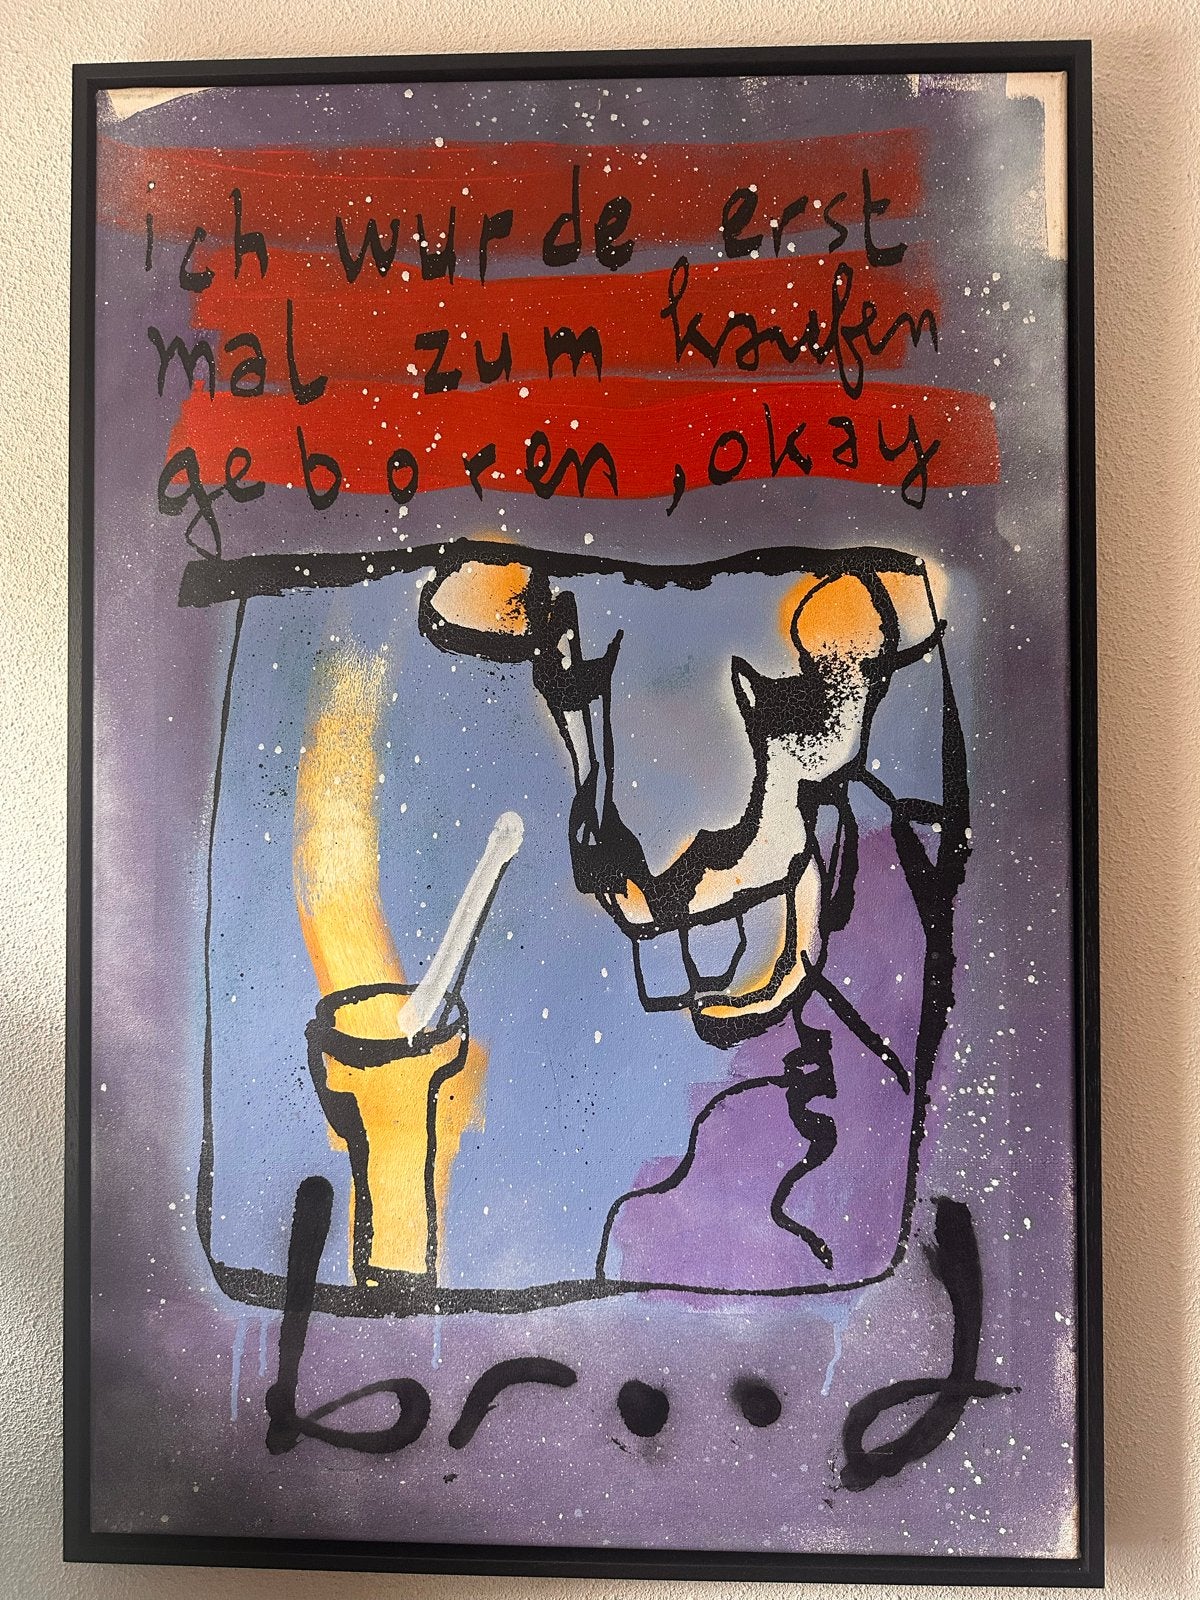 ich wurde erst
mal zum kaufen
geboren, okay
brood